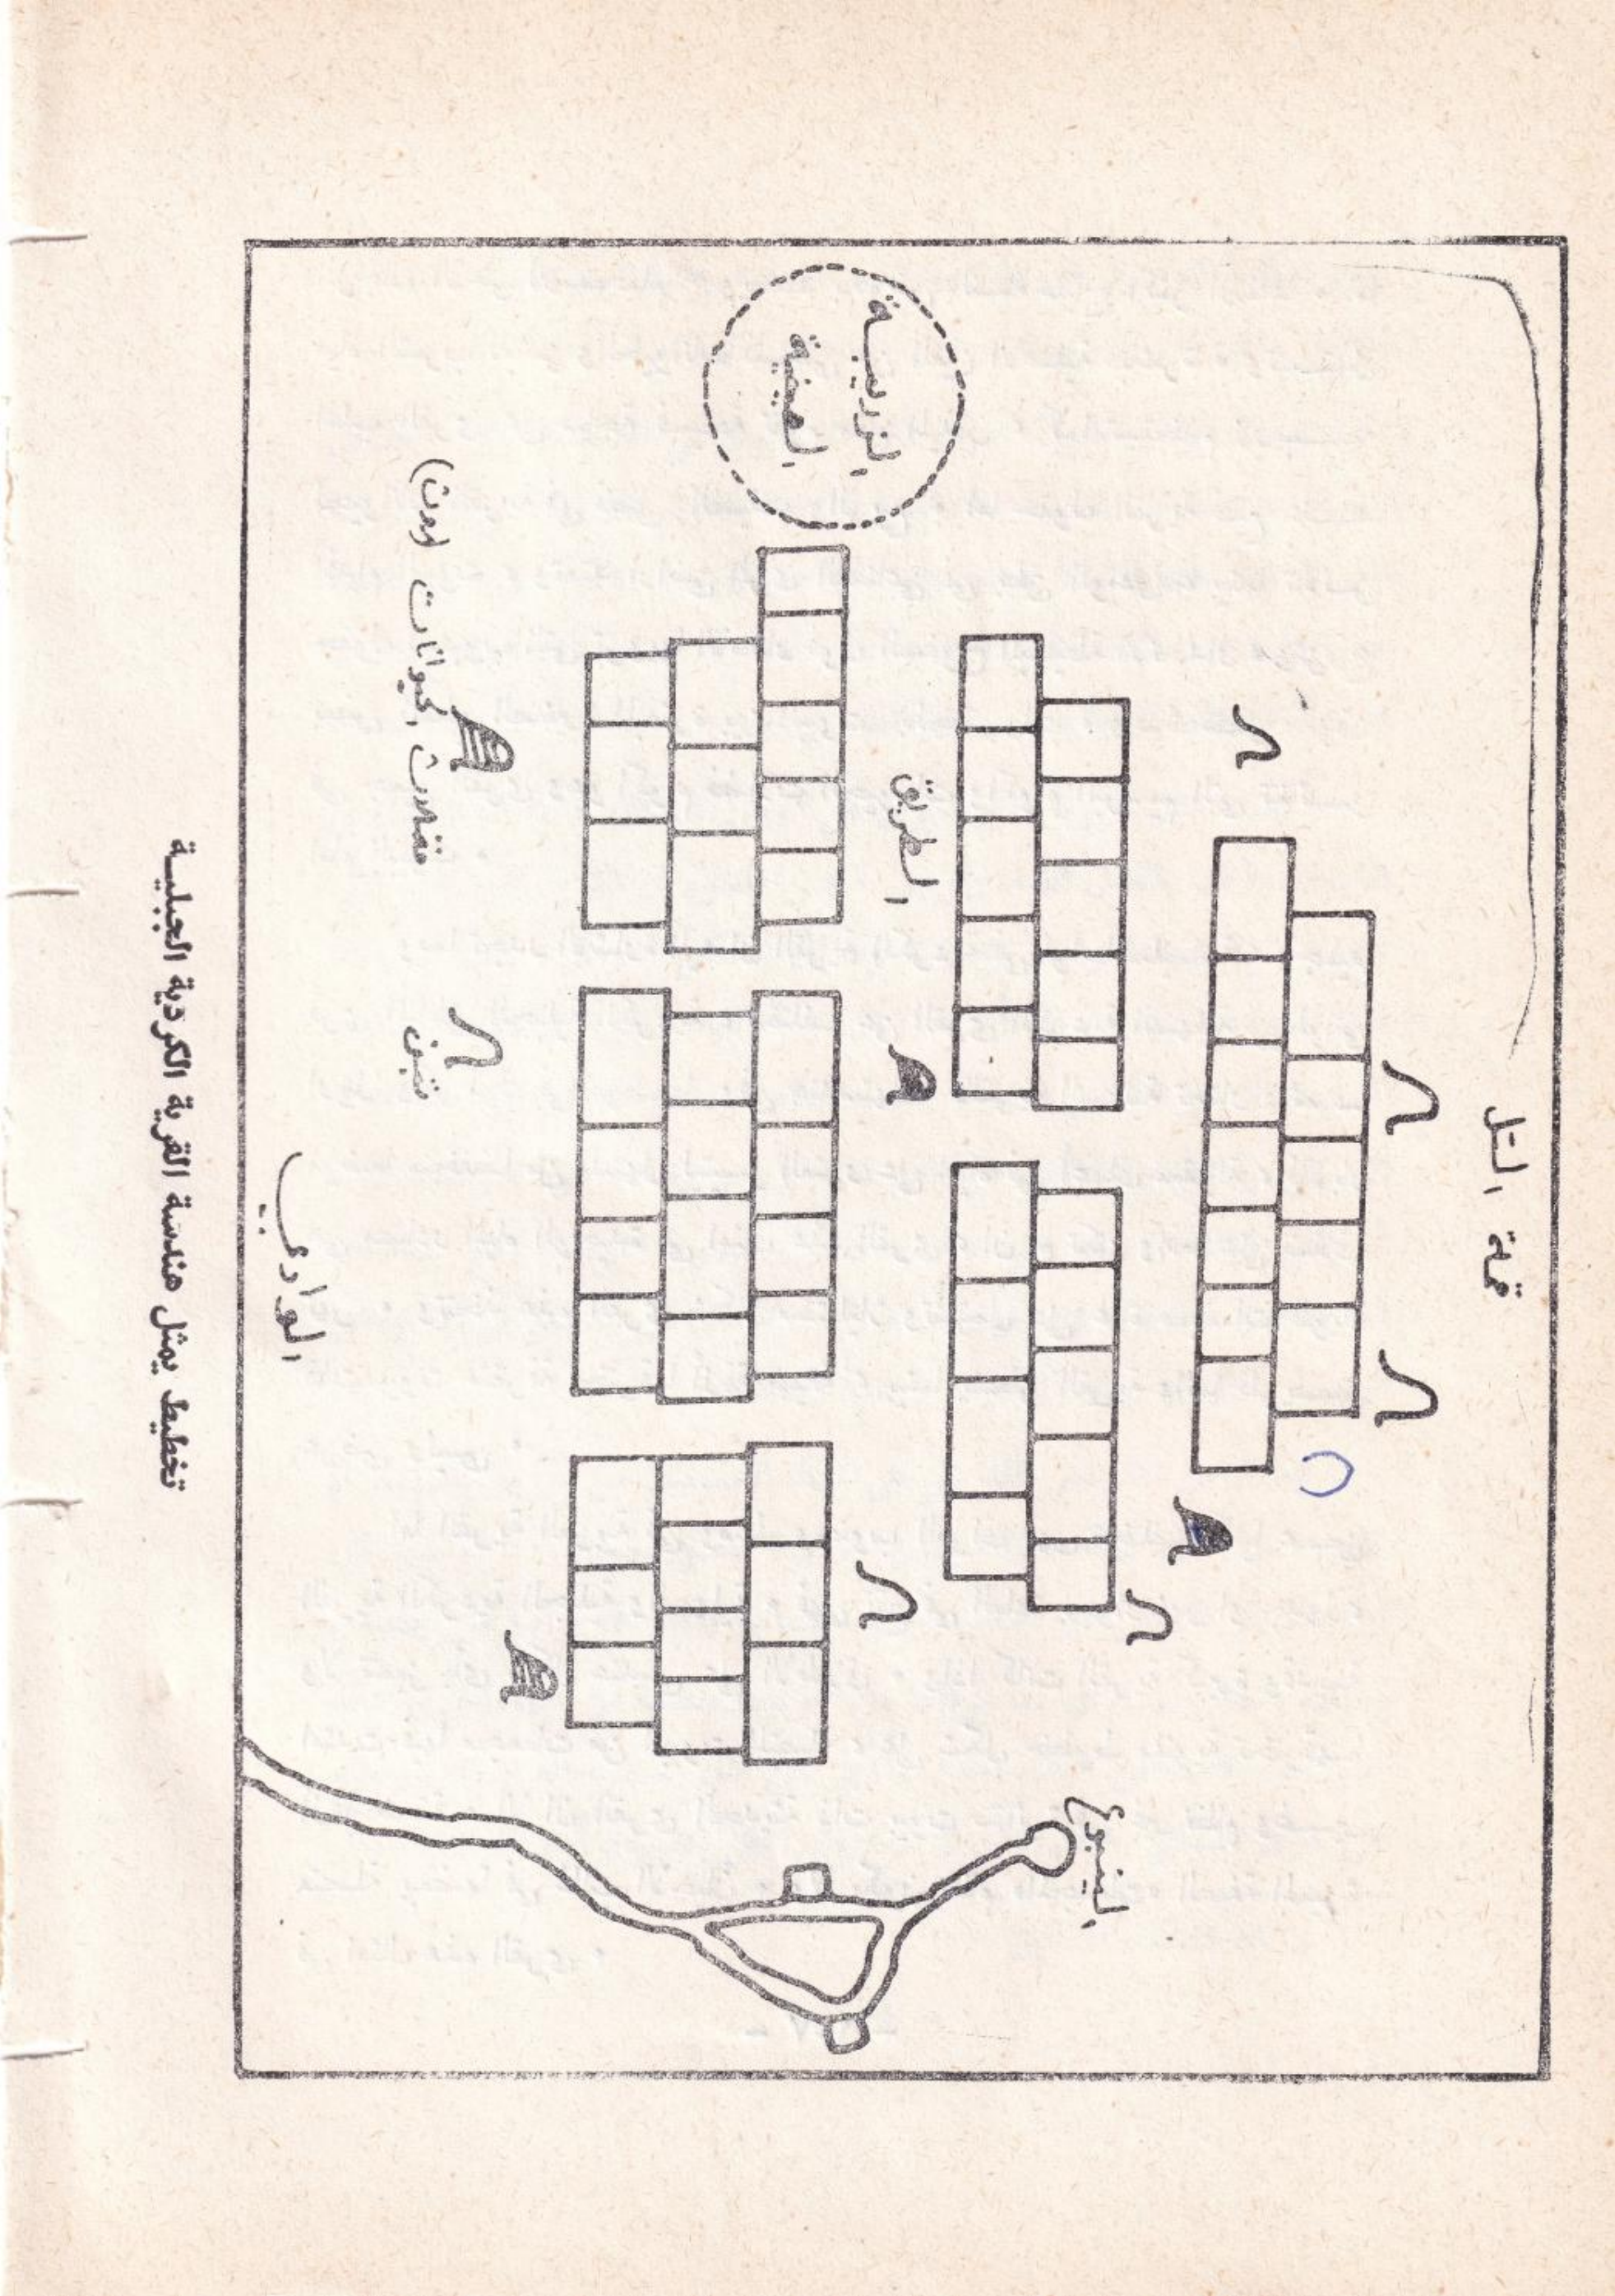 قمة التل
الينبوع
الطريق
الزريبة
الصيفية
فضلات الحيوانات (روث)
تبن
الوادي
تخطيط يمثل هندسة القرية الكردية الجبلية